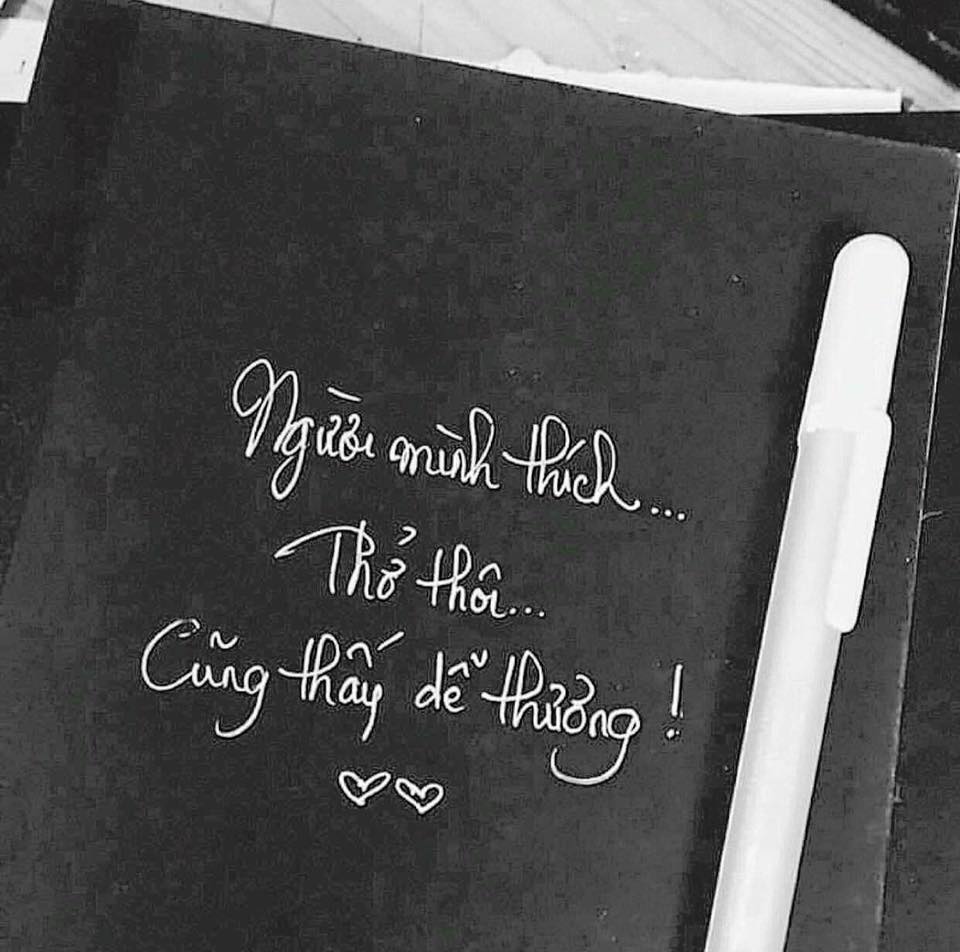 Người mình thích...
Thở thôi...
Cũng thấy dễ thương !